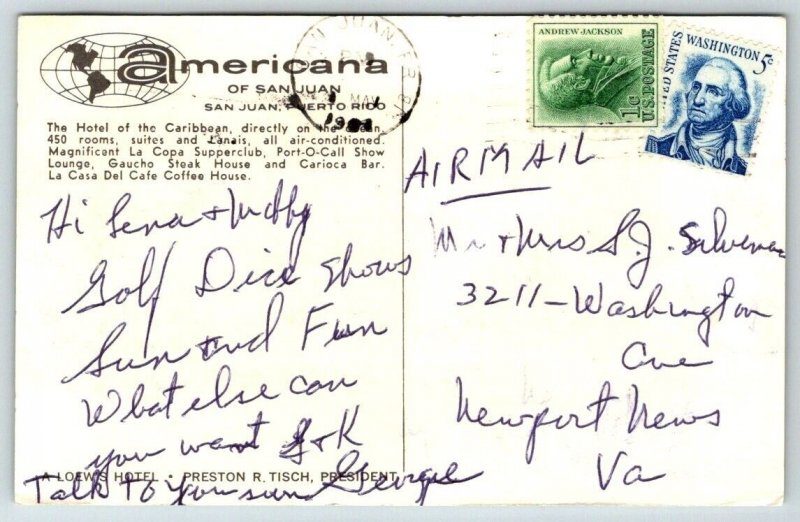 americana
OF SAN JUAN
SAN JUAN, PUERTO RICO
The Hotel of the Caribbean, directly on the ocean.
450 rooms, suites and lanais, all air-conditioned.
Magnificent La Copa Supperclub, Port-O-Call Show
Lounge, Gaucho Steak House and Carioca Bar.
La Casa Del Cafe Coffee House.
Hi Lena +
Golf Dice Shows
Sun and Fun
What else can
you want
Talk To you sun George
A LOEW'S HOTEL • PRESTON R. TISCH, PRESIDENT
SAN JUAN P.R.
MAY
ANDREW JACKSON
1c
U.S. POSTAGE
UNITED STATES
WASHINGTON 5c
AIRMAIL
Mr + Mrs S. J.
3211 - Washington
Ave
Newport News
Va